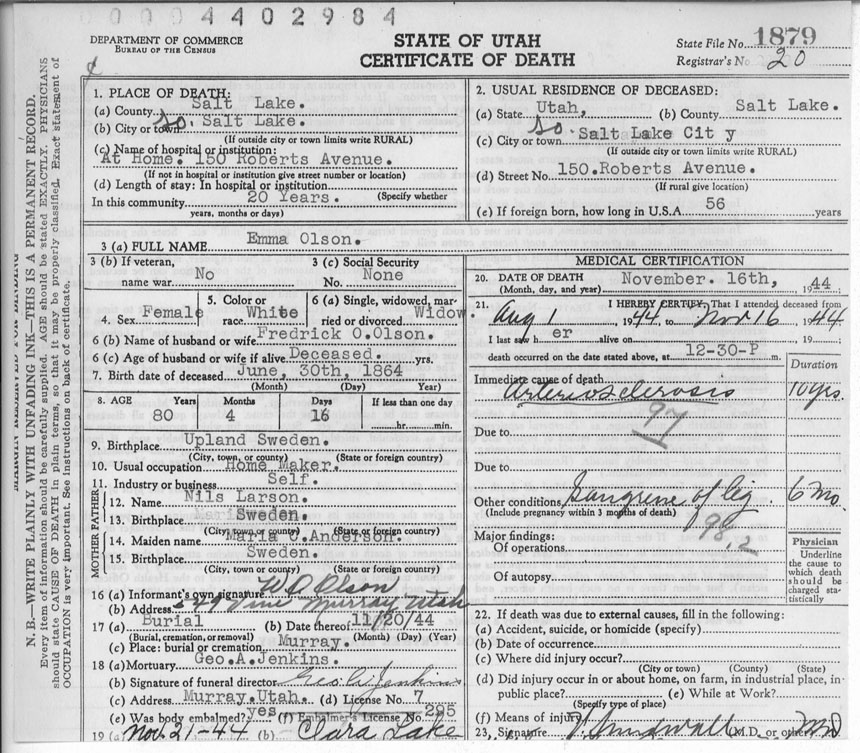 0004402984
DEPARTMENT OF COMMERCE
BUREAU OF THE CENSUS
STATE OF UTAH
CERTIFICATE OF DEATH
State File No. 1879
Registrar's No. 20
N. B.—WRITE PLAINLY WITH UNFADING INK—THIS IS A PERMANENT RECORD.
Every item of information should be carefully supplied. AGE should be stated EXACTLY. PHYSICIANS
should state CAUSE OF DEATH in plain terms, so that it may be properly classified. Exact statement of
OCCUPATION is very important. See instructions on back of certificate.
1. PLACE OF DEATH:
(a) County Salt Lake.
(b) City or town So. Salt Lake.
(If outside city or town limits write RURAL)
(c) Name of hospital or institution:
At Home: 150 Roberts Avenue.
(If not in hospital or institution give street number or location)
(d) Length of stay: In hospital or institution
(Specify whether
In this community 20 Years.
years, months or days)
2. USUAL RESIDENCE OF DECEASED:
(a) State Utah, (b) County Salt Lake.
(c) City or town So. Salt Lake Cit y
(If outside city or town limits write RURAL)
(d) Street No. 150.Roberts Avenue.
(If rural give location)
(e) If foreign born, how long in U.S.A. 56 years
3 (a) FULL NAME Emma Olson.
3 (b) If veteran, name war No
3 (c) Social Security No. None
4. Sex Female
5. Color or race White
6 (a) Single, widowed, married or divorced Widow.
6 (b) Name of husband or wife Fredrick O.Olson.
6 (c) Age of husband or wife if alive Deceased. yrs.
7. Birth date of deceased June, 30th, 1864
(Month) (Day) (Year)
8. AGE Years Months Days If less than one day
80 4 16 hr. min.
9. Birthplace Upland Sweden.
(City, town, or county) (State or foreign country)
10. Usual occupation Home Maker.
11. Industry or business Self.
MOTHER FATHER
12. Name Nils Larson.
13. Birthplace Sweden.
(City, town or county) (State or foreign country)
14. Maiden name Maria C.Anderson.
15. Birthplace Sweden.
(City, town, or county) (State or foreign country)
16 (a) Informant's own signature W O Olson
(b) Address 549 Vine Murray Utah
17 (a) Burial (b) Date thereof 11/20/44
(Burial, cremation, or removal) (Month) (Day) (Year)
(c) Place: burial or cremation Murray.
18 (a) Mortuary Geo.A.Jenkins.
(b) Signature of funeral director Geo. A. Jenkins
(c) Address Murray.Utah. (d) License No. 7
(e) Was body embalmed? yes (f) Embalmer's License No. 295
19 (a) Nov. 21-44 (b) Clara Lake
MEDICAL CERTIFICATION
20. DATE OF DEATH November. 16th, 1944
(Month, day, and year)
21. I HEREBY CERTIFY, That I attended deceased from
Aug 1, 1944, to Nov 16, 1944
I last saw her alive on 19
death occurred on the date stated above, at 12-30-P m.
Duration
Immediate cause of death
Arteriosclerosis 10 yrs.
97
Due to
Due to
Other conditions Gangrene of leg 6 Mo.
(Include pregnancy within 3 months of death)
98.2
Major findings:
Of operations
Of autopsy
Physician
Underline
the cause to
which death
should be
charged sta-
tistically
22. If death was due to external causes, fill in the following:
(a) Accident, suicide, or homicide (specify)
(b) Date of occurrence
(c) Where did injury occur?
(City or town) (County) (State)
(d) Did injury occur in or about home, on farm, in industrial place, in
public place? (e) While at Work?
(Specify type of place)
(f) Means of injury
23. Signature (M.D. or other) MD